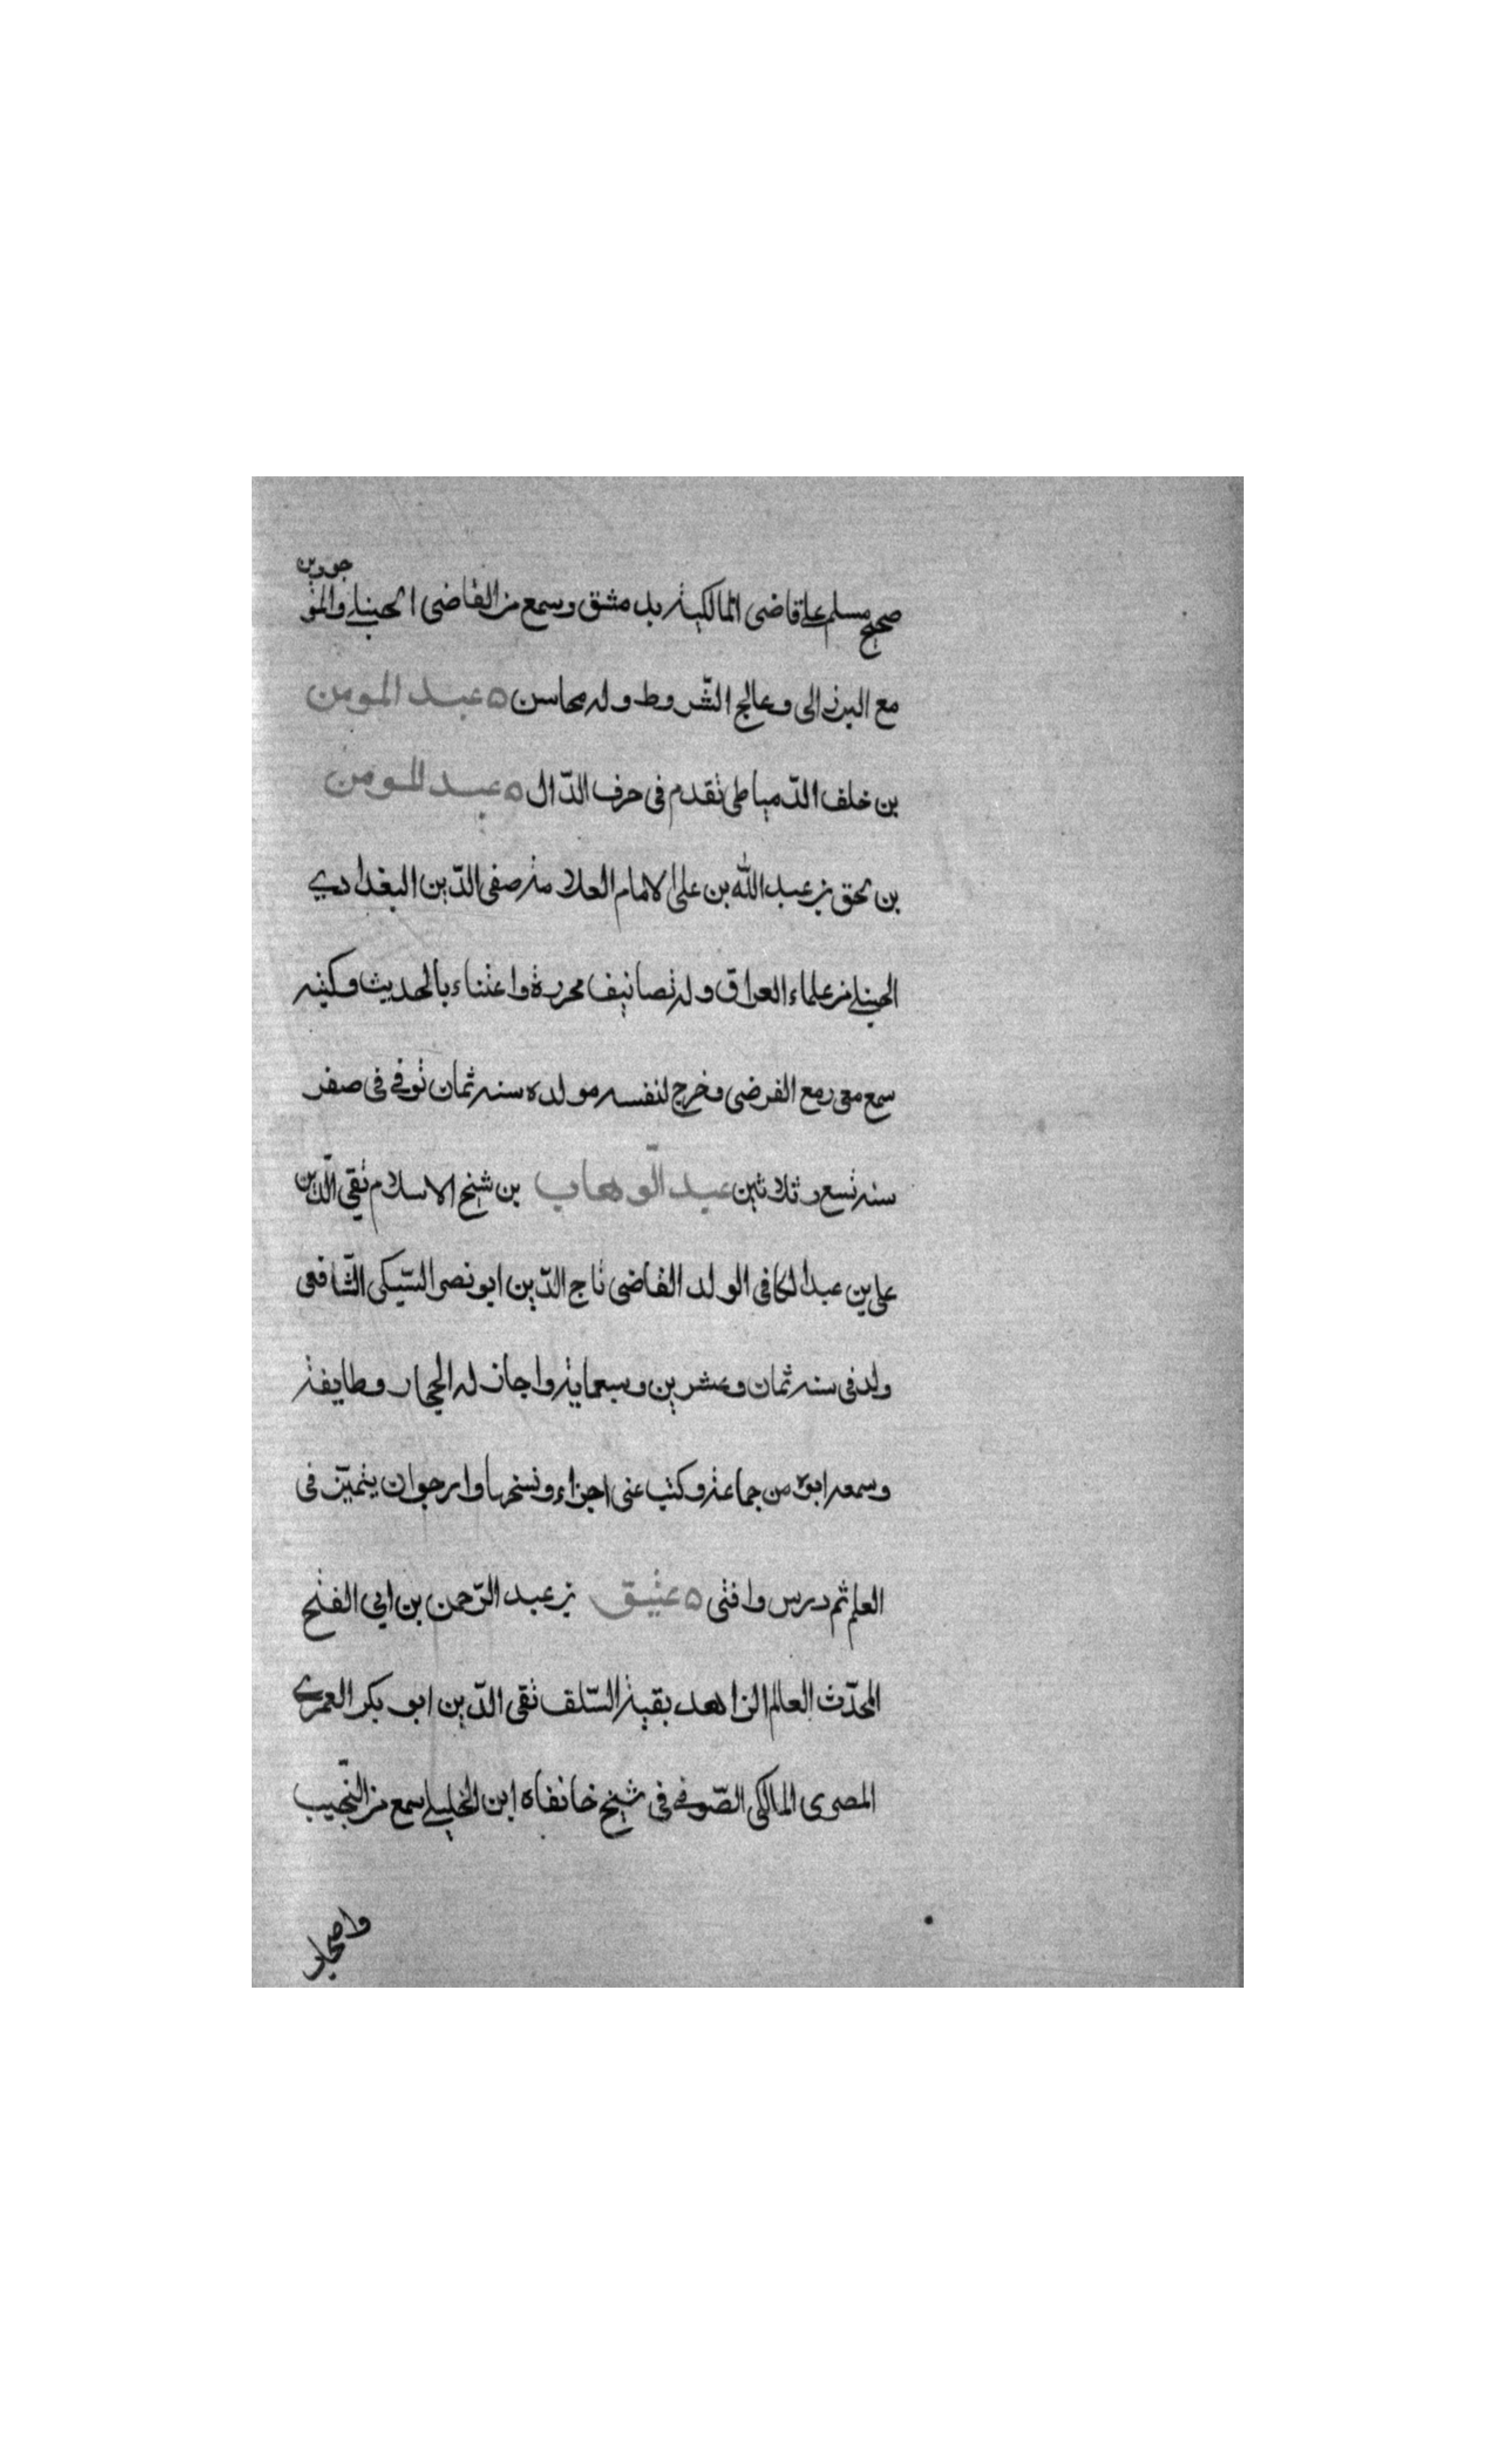 صحيح مسلم على قاضى المالكية بدمشق وسمع من القاضى الحنبلى والموجودين
مع البرزالى وعالج الشروط وله محاسن ه عبد المومن
بن خلف الدمياطى تقدم فى حرف الدال ه عبد المومن
بن عبد الله بن على الامام العلامة صفى الدين البغدادي
الحنبلى من علماء العراق وله تصانيف محررة واعتناء بالحديث وكتبه
سمع معى ومع الفرضى وخرج لنفسه مولده سنة ثمان توفى فى صفر
سنة تسع وثلاثين عبد الوهاب بن شيخ الاسلام تقي الدين
على بن عبد الكافى الولد القاضى تاج الدين ابو نصر السبكى الشافعى
ولد فى سنة ثمان وعشرين وسبعماية واجاز له الحجار وطايفة
وسمعه ابوه من جماعة وكتب عنى اجزاء ونسخها وارجو ان يتميز فى
العلم ثم درس وافتى ه عتيق بن عبد الرحمن بن ابي الفتح
المحدث العالم الزاهد بقية السلف تقى الدين ابو بكر العمري
المصرى المالكى الصوفى فى شيخ خانقاه ابن الخليلى سمع من النجيب